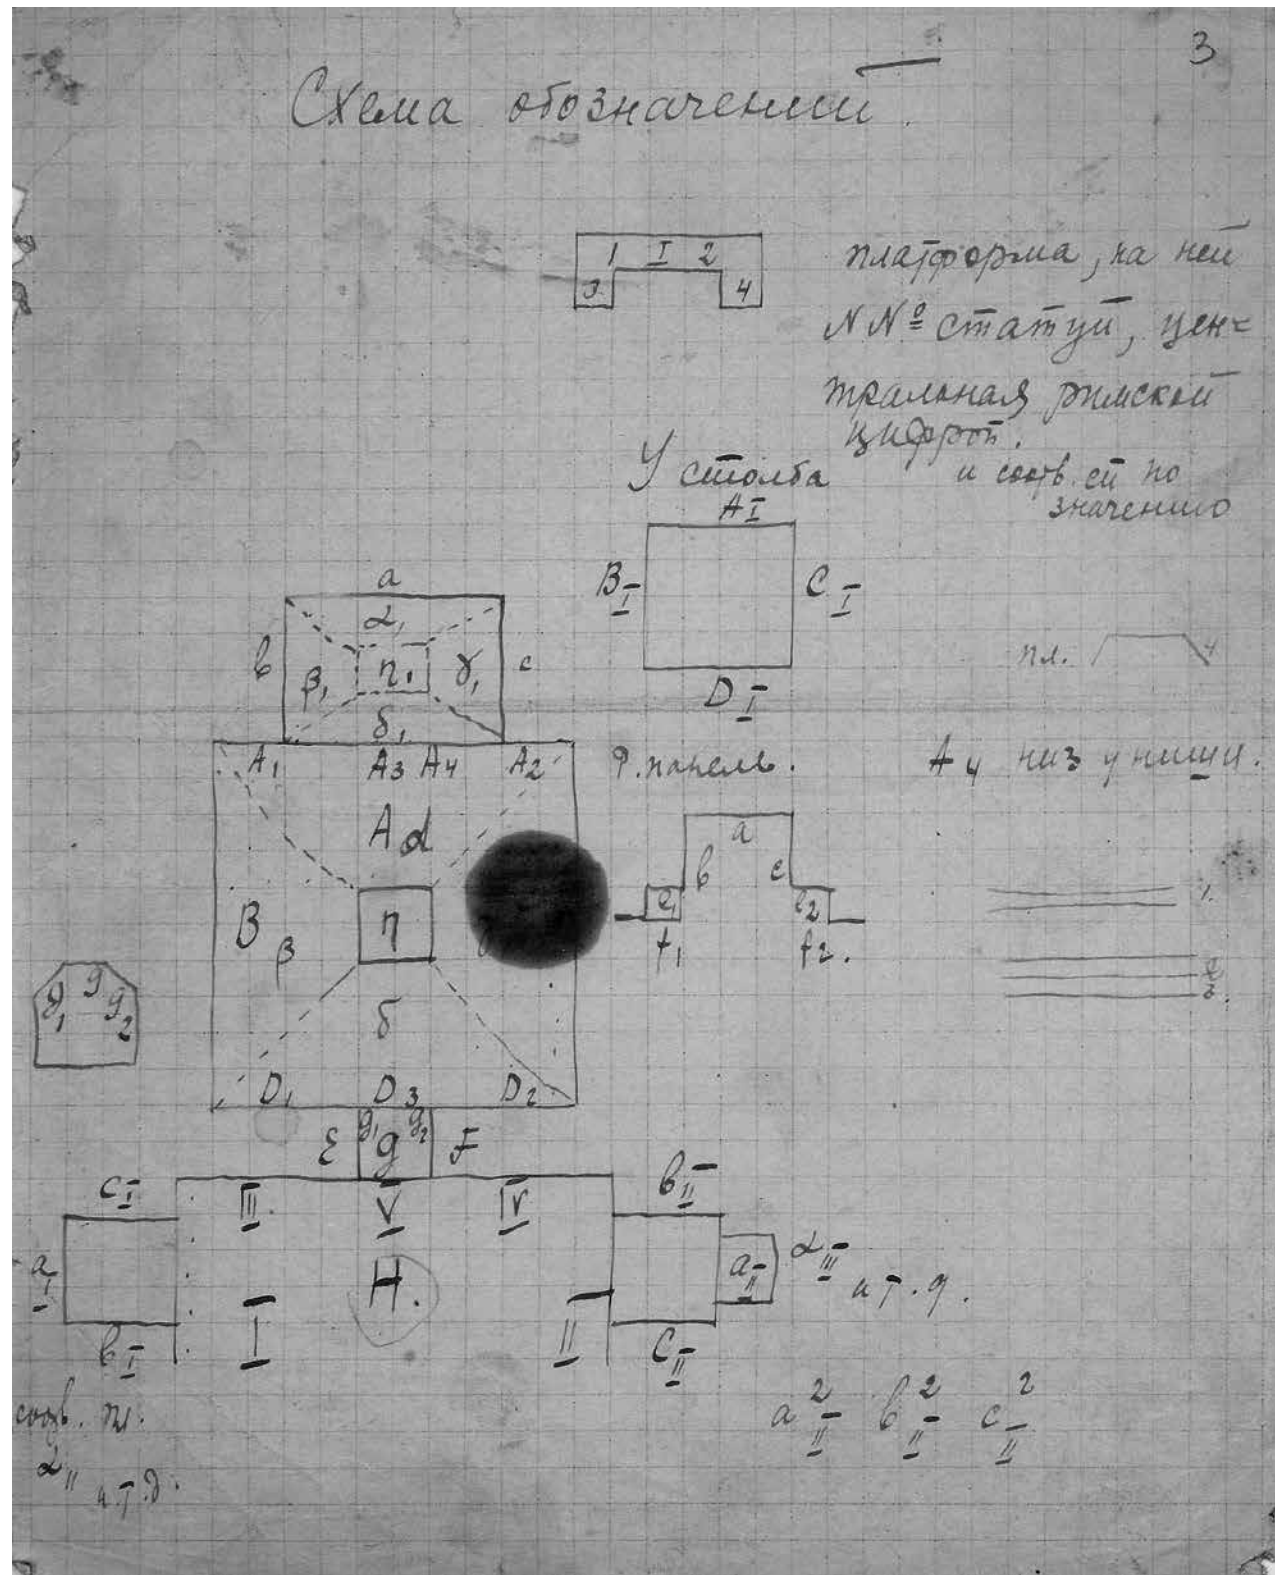 3
Схема обозначений.
1 I 2
3 4
платформа, на ней
NNº статуй, цен=
тральная римской
цифрой.
и соотв. ей по
значению
У столба
A I
B I C I
D I
a
α₁
в β₁ η₁ γ₁ c
δ₁
пл.
A₁ A₃ A₄ A₂
Ф. панель.
A₄ низ у ниши.
A α
a
в c
e₁ e₂
f₁ f₂.
1.
2
3.
B β η
g₁ g g₂
δ
D₁ D₃ D₂
E g₁ g g₂ F
c I III. V IV в II
a I H. a II α III
и т. д.
I II
в I c II
соотв. пл.
α II
и т. д.
a² II в² II c² II